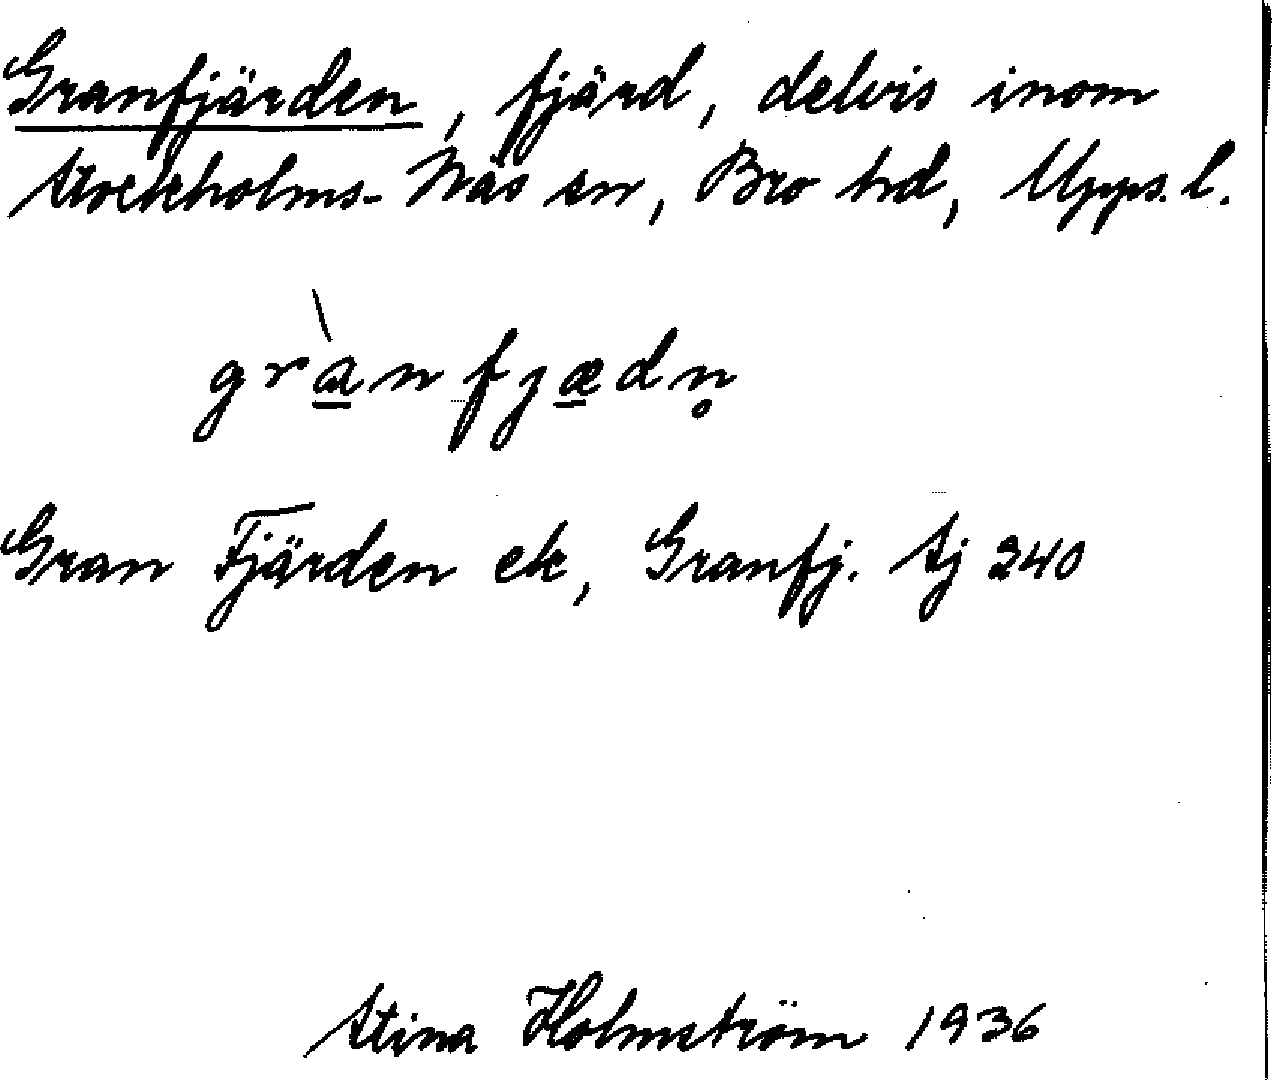 Granfjärden, fjärd, delvis inom
Stockholms-Näs sn, Bro hd, Upps. l.
grànfjædn̥
Gran Fjärden ek, Granfj. Sj 240
Stina Holmström 1936